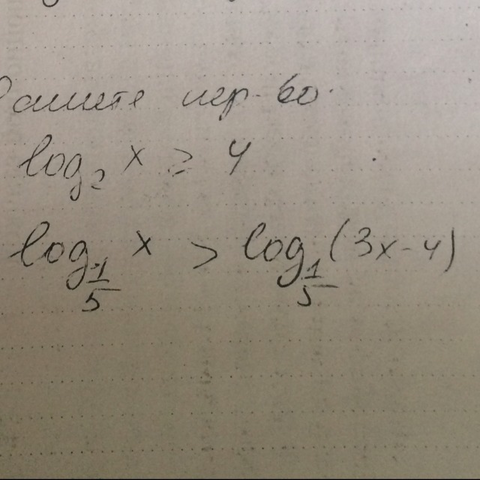 Решите нер-во.
log₂ x ≥ 4
log_{1/5} x > log_{1/5} (3x-4)